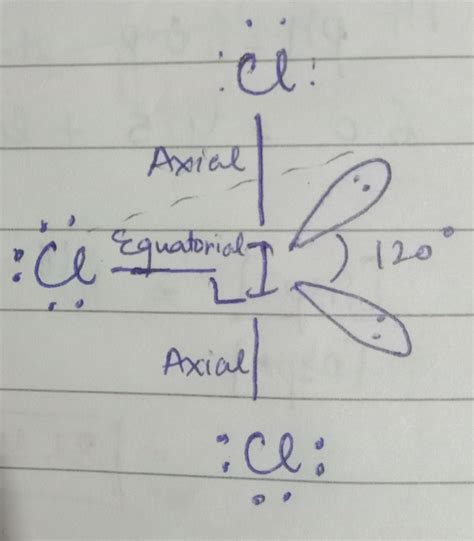 Cl
Axial
Equatorial
Cl I 120°
Axial
Cl